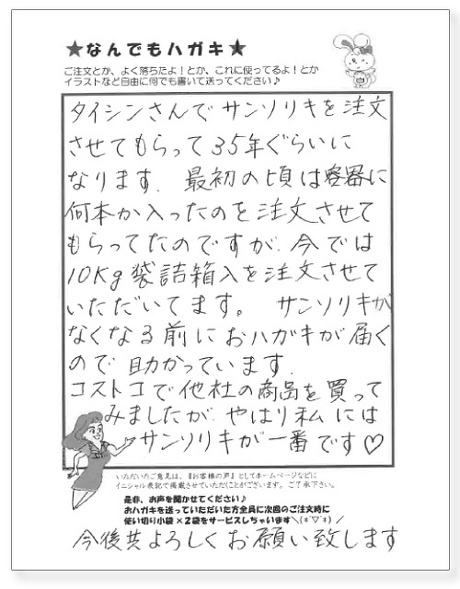 ★なんでもハガキ★
ご注文とか、よく落ちたよ!とか、これに使ってるよ!とか
イラストなど自由に何でも書いて送ってください♪
タイシンさんでサンソリキを注文
させてもらって35年ぐらいに
なります. 最初の頃は容器に
何本か入ったのを注文させて
もらってたのですが.今では
10Kg袋詰箱入を注文させて
いただいてます。 サンソリキが
なくなる前におハガキが届く
ので助かっています.
コストコで他社の商品を買って
みましたが.やはり私には
サンソリキが一番です♡
いただいたご意見は、『お客様の声』としてホームページなどに
イニシャル表記で掲載させていただくことがございます。ご了承下さい。
是非、お声を聞かせてください♪
おハガキを送っていただいた方全員に次回のご注文時に
使い切り小袋×2袋をサービスしちゃいます＼(*ˆ▽ˆ*)／
今後共よろしくお願い致します